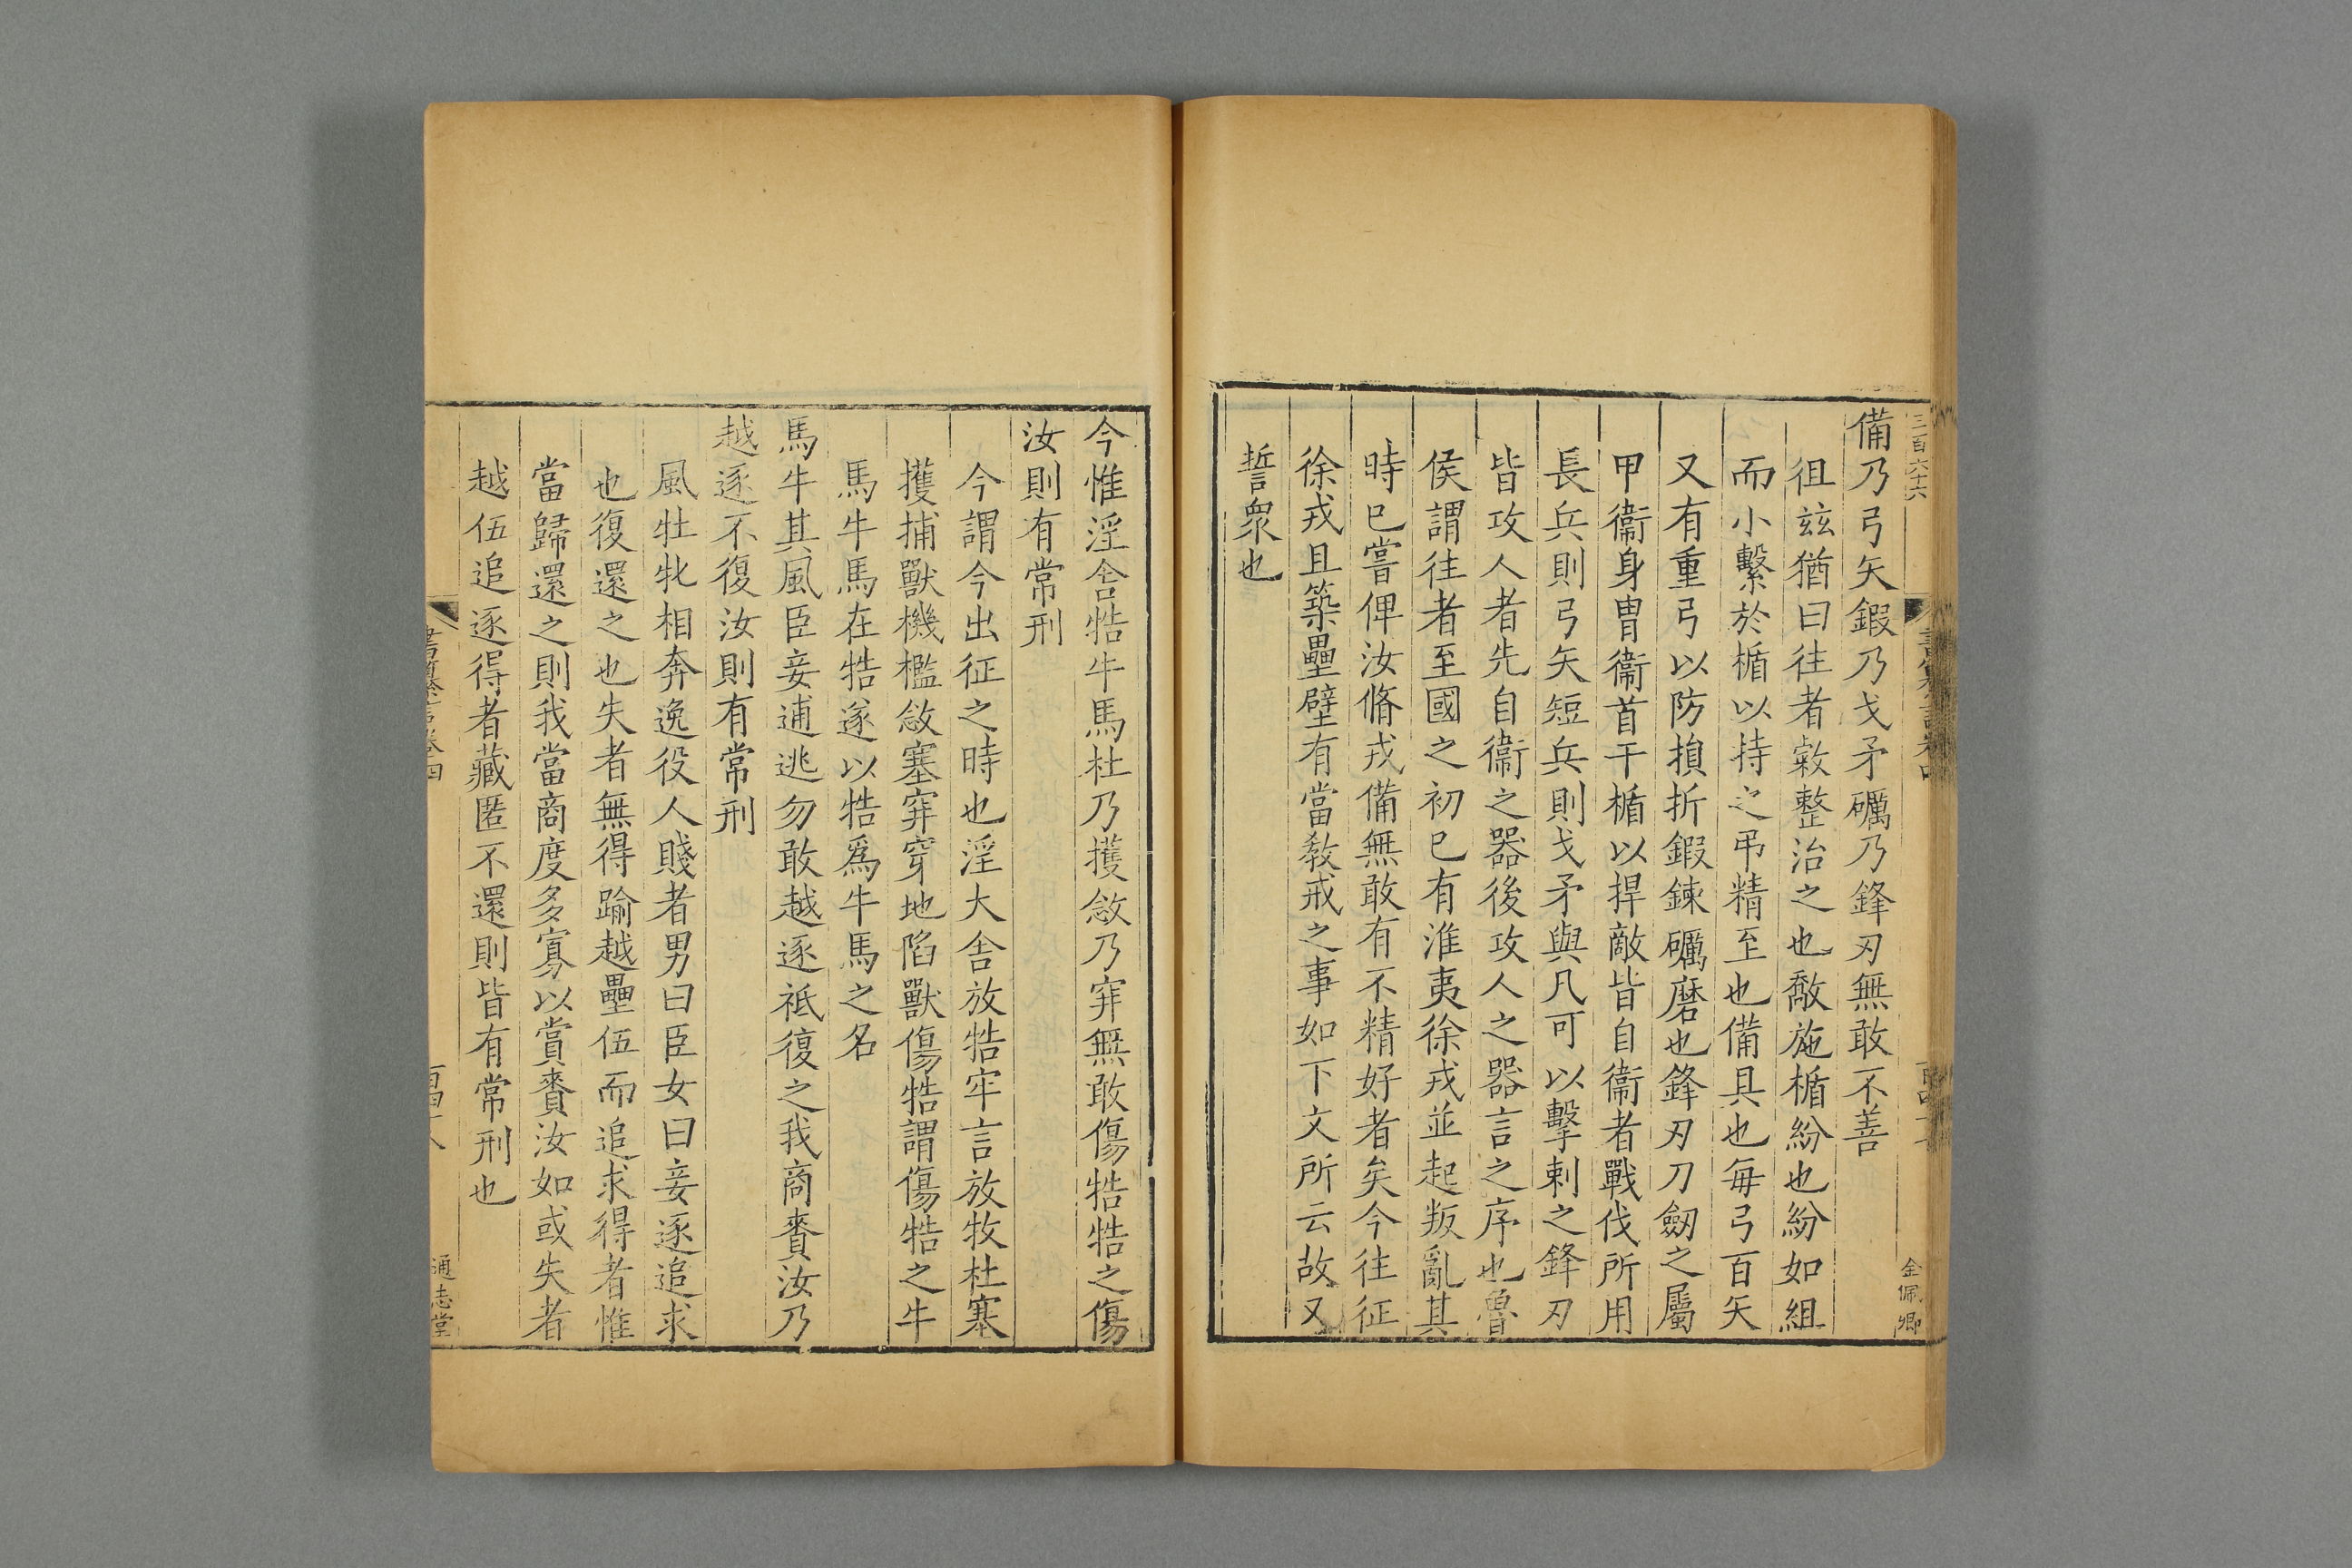 三百六十六
金佩卿
備乃弓矢鍜乃戈矛礪乃鋒刃無敢不善
徂玆猶曰往者敹整治之也敿施楯紛也紛如組
而小繫於楯以持之弔精至也備具也每弓百矢
又有重弓以防損折鍜鍊礪磨也鋒刃刀劒之屬
甲衞身胄衞首干楯以捍敵皆自衞者戰伐所用
長兵則弓矢短兵則戈矛與凡可以擊刺之鋒刃
皆攻人者先自衞之器後攻人之器言之序也魯
侯謂往者至國之初已有淮夷徐戎並起叛亂其
時已嘗俾汝脩戎備無敢有不精好者矣今往征
徐戎且築壘壁有當敎戒之事如下文所云故又
誓衆也
今惟淫舍牿牛馬杜乃擭敜乃穽無敢傷牿牿之傷
汝則有常刑
今謂今出征之時也淫大舍放牿牢言放牧杜塞
擭捕獸機檻敜塞穽穿地陷獸傷牿謂傷牿之牛
馬牛馬在牿遂以牿爲牛馬之名
馬牛其風臣妾逋逃勿敢越逐祗復之我商賚汝乃
越逐不復汝則有常刑
風牡牝相奔逸役人賤者男曰臣女曰妾逐追求
也復還之也失者無得踰越壘伍而追求得者惟
當歸還之則我當商度多寡以賞賚汝如或失者
越伍追逐得者藏匿不還則皆有常刑也
通志堂